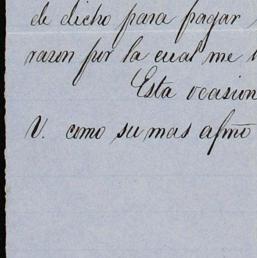 de dicho para pagar
razon por la cual me
Esta ocasion
V. como su mas afmo